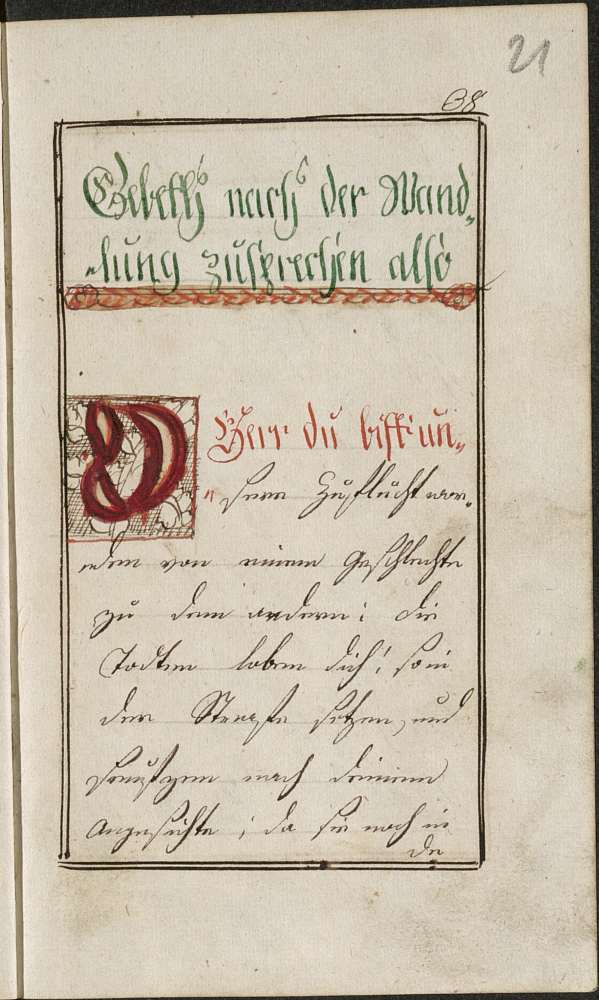 21
38
Gebetth nach der Wand„
„lung zusprechen also
O Herr du bist un„
„sere Zuflucht wor„
„den von einem Geschlechte
zu dem andern: die
Todten loben dich! so in
der Straffe sitzen, und
seufzen nach deinem
Angesichte; da sie noch in
der